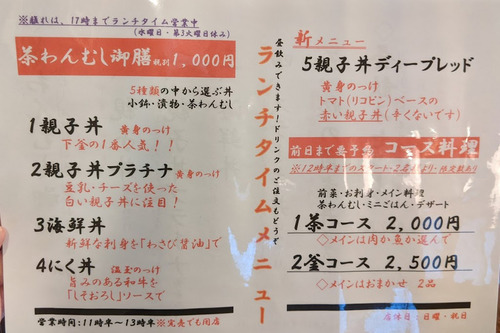 ※離れは、17時までランチタイム営業中
(水曜日・第3火曜日休み)
茶わんむし御膳 税別 1,000円
5種類の中から選ぶ丼
小鉢・漬物・茶わんむし
1親子丼 黄身のっけ
下釜の1番人気!!
2親子丼プラチナ 黄身のっけ
豆乳・チーズを使った
白い親子丼に注目!
3海鮮丼
新鮮な刺身を「わさび醤油」で
4にく丼 温玉のっけ
旨みのある和牛を
「しそおろし」ソースで
営業時間:11時半~13時半 ※完売でも閉店
ランチタイムメニュー
昼飲みできます!ドリンクのご注文もどうぞ
新メニュー
5親子丼ディープレッド
黄身のっけ
トマト(リコピン)ベースの
赤い親子丼(辛くないです)
前日まで要予約 コース料理
※12時半までのスタート・2名様より・限定数あり
前菜・お刺身・メイン料理
茶わんむし・ミニごはん・デザート
1茶コース 2,000円
◇メインは肉か魚か選んで
2釜コース 2,500円
◇メインはおまかせ 2品
店休日:日曜・祝日